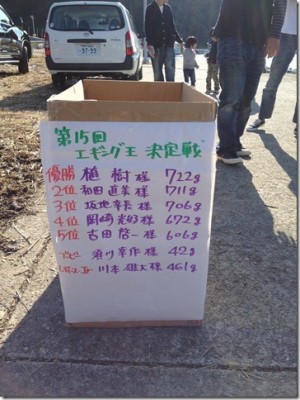 第15回
エギング王 決定戦
優勝 植 樹 様 722g
2位 和田 直美 様 711g
3位 坂地 幸長 様 706g
4位 岡崎 光好 様 672g
5位 古田 啓一 様 606g
須川 幸作 様 42g
川本 雄大 様 461g